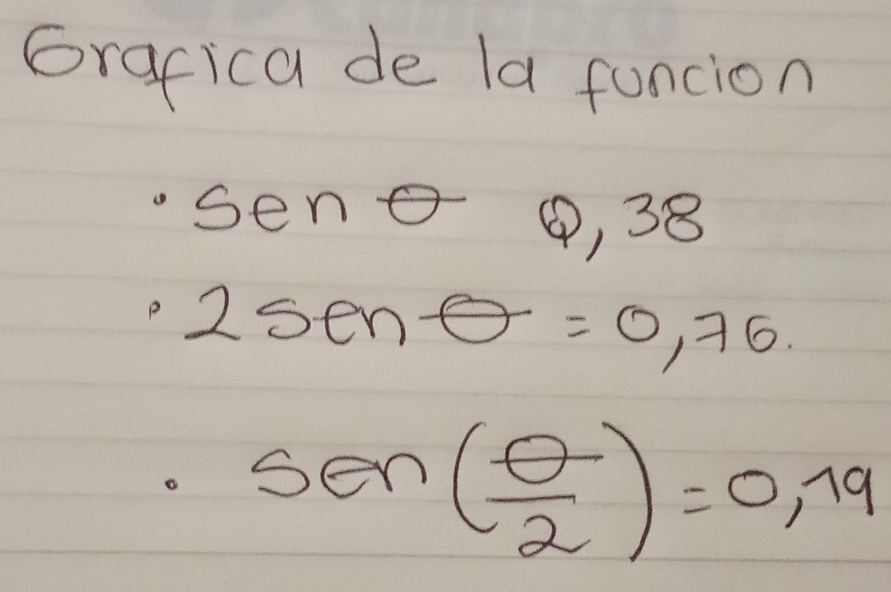 Grafica de la funcion
· Sen θ 0,38
· 2 Sen θ = 0,76.
· Sen (θ/2) = 0,19